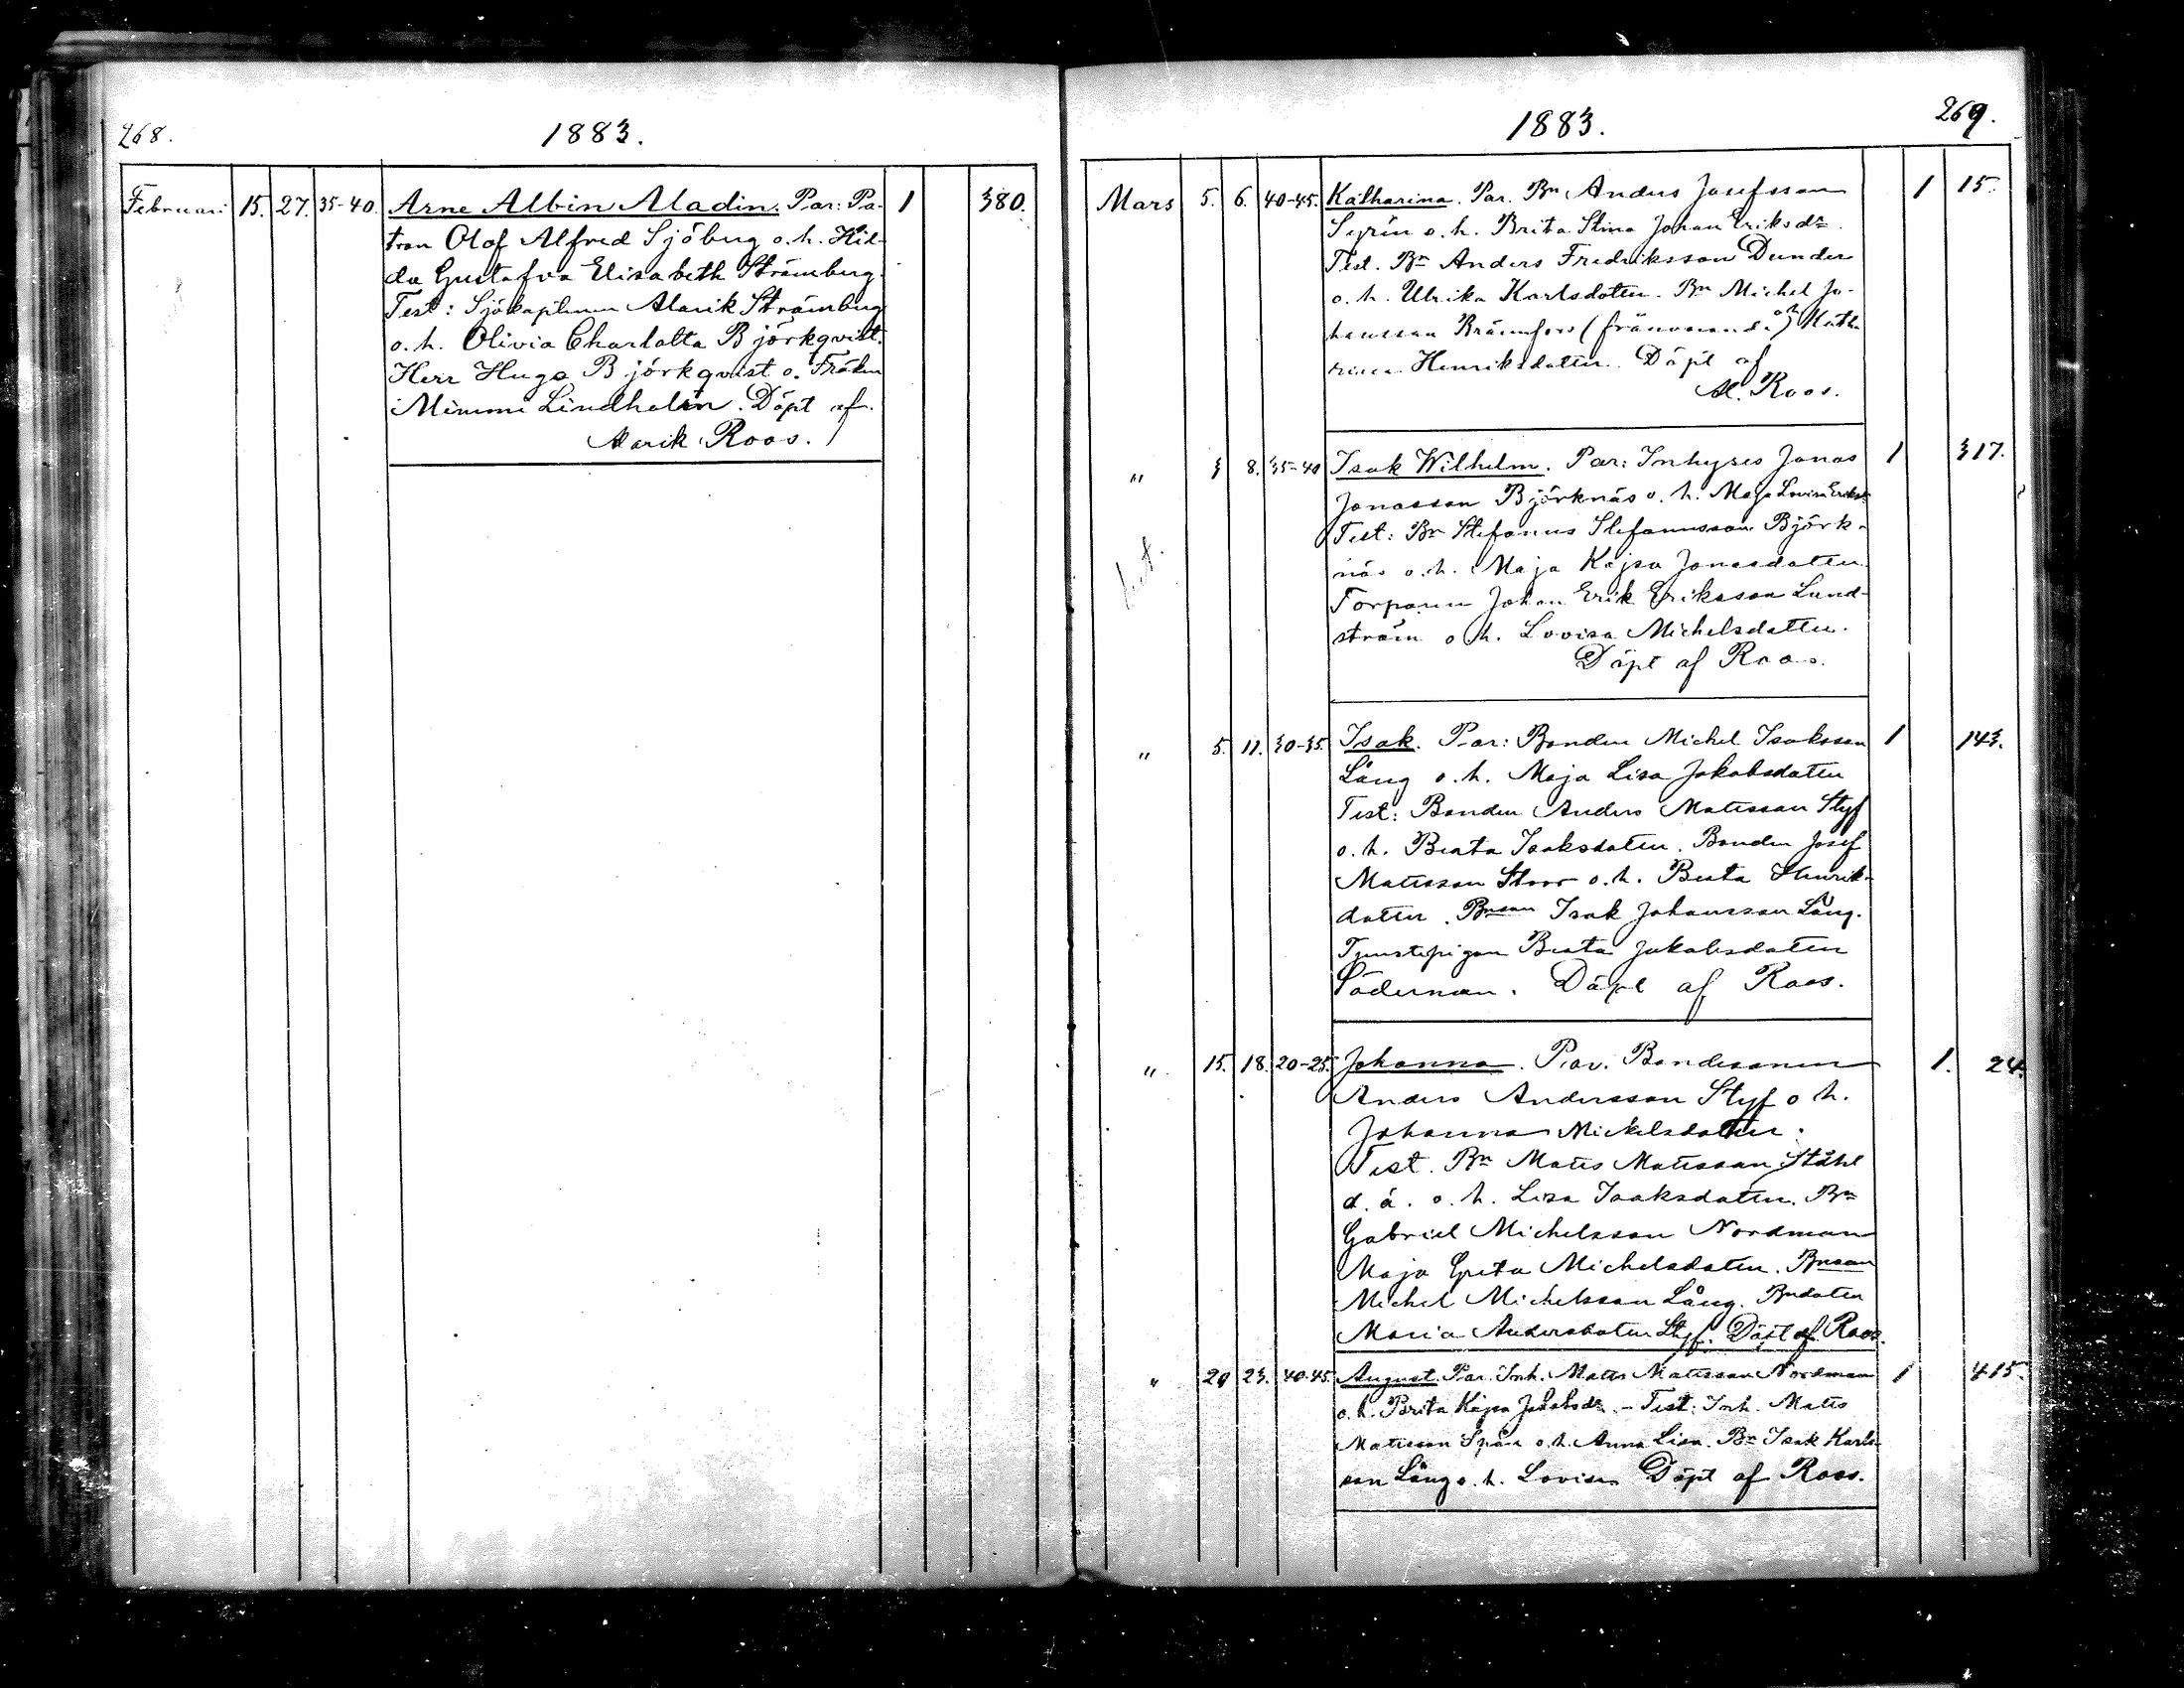 268.
1883.
Februari 15. 27. 35-40. Arne Albin Aladin. Par: Pa-
tron Olof Alfred Sjöberg o. h. Hil-
da Gustafva Elisabeth Strömberg.
Test: Sjökaptenen Alarik Strömberg
o. h. Olivia Charlotta Björkqvist.
Herr Hugo Björkqvist o. Fröken
Mimmi Lindholm. Döpt af
Alarik Roos.
1 380.
1883.
269.
Mars 5. 6. 40-45. Katharina. Par. Bn Anders Josefsson
Syrén o. h. Brita Stina Johan Eriksdr.
Test. Bn Anders Fredriksson Dunder
o. h. Ulrika Karlsdotter. Bn Michel Jo-
hansson Brännfors (frånvarande) Katha
rina Henriksdotter. Döpt af
Al. Roos.
1 15.
" 3 8. 35-40 Isak Wilhelm. Par: Inhyses Jonas
Jonasson Björknäs o. h. Maja Lovisa Eriksdr
Test: Bn Stefanus Stefanusson Björk-
näs o. h. Maja Kajsa Jonasdotter.
Torparen Johan Erik Eriksson Lund-
ström o. h. Lovisa Michelsdotter.
Döpt af Roos.
1 317.
" 5. 11. 30-35. Isak. Par: Bonden Michel Isaksson
Lång o. h. Maja Lisa Jakobsdotter
Test: Bonden Anders Matsson Styf
o. h. Beata Isaksdotter. Bonden Josef
Matsson Stoor o. h. Beata Henriks-
dotter. Bnson Isak Johansson Lång.
Tjenstepigan Beata Jakobsdotter
Söderman. Döpt af Roos.
1 143.
" 15. 18. 20-25. Johanna. Par. Bondesonen
Anders Andersson Styf o h.
Johanna Mickelsdotter.
Test. Bn Mats Matsson Ståhl
d. ä. o. h. Lisa Isaksdotter. Bn
Gabriel Michelsson Nordman
Maja Greta Michelsdotter. Bnson
Michel Michelsson Lång. Bndotter
Maria Andersdotter Styf. Döpt af Roos.
1. 24.
" 20 23. 40-45. August. Par. Inh. Mats Matsson Nordman
o. h. Brita Kajsa Jakobsdr. - Test: Inh. Mats
Matsson Spåra o. h. Anna Lisa. Bn Isak Karls-
son Lång o. h. Lovisa. Döpt af Roos.
1 415.